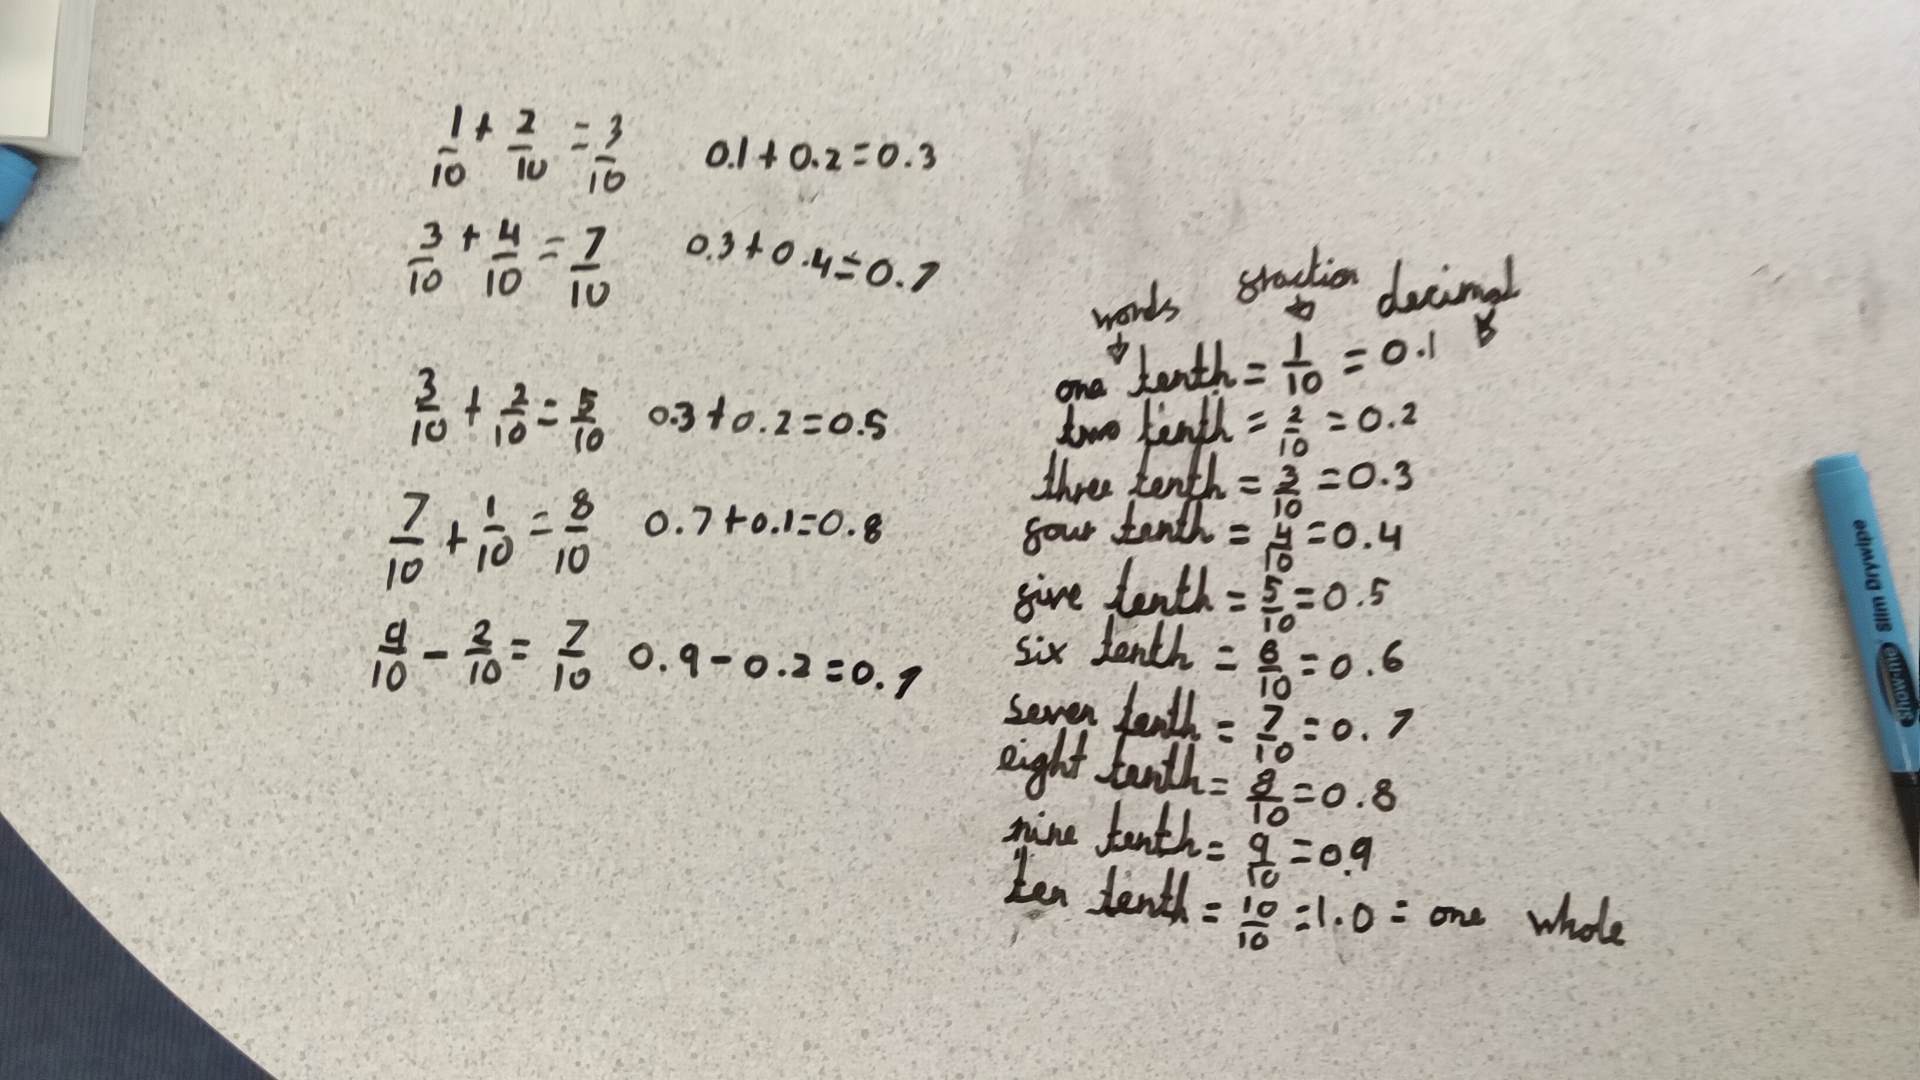 1/10 + 2/10 = 3/10 0.1 + 0.2 = 0.3
3/10 + 4/10 = 7/10 0.3 + 0.4 = 0.7
3/10 + 2/10 = 5/10 0.3 + 0.2 = 0.5
7/10 + 1/10 = 8/10 0.7 + 0.1 = 0.8
9/10 - 2/10 = 7/10 0.9 - 0.2 = 0.7
words fraction decimal
one tenth = 1/10 = 0.1
two tenth = 2/10 = 0.2
three tenth = 3/10 = 0.3
four tenth = 4/10 = 0.4
five tenth = 5/10 = 0.5
six tenth = 6/10 = 0.6
seven tenth = 7/10 = 0.7
eight tenth = 8/10 = 0.8
nine tenth = 9/10 = 0.9
ten tenth = 10/10 = 1.0 = one whole
show-me
Slim Drywipe